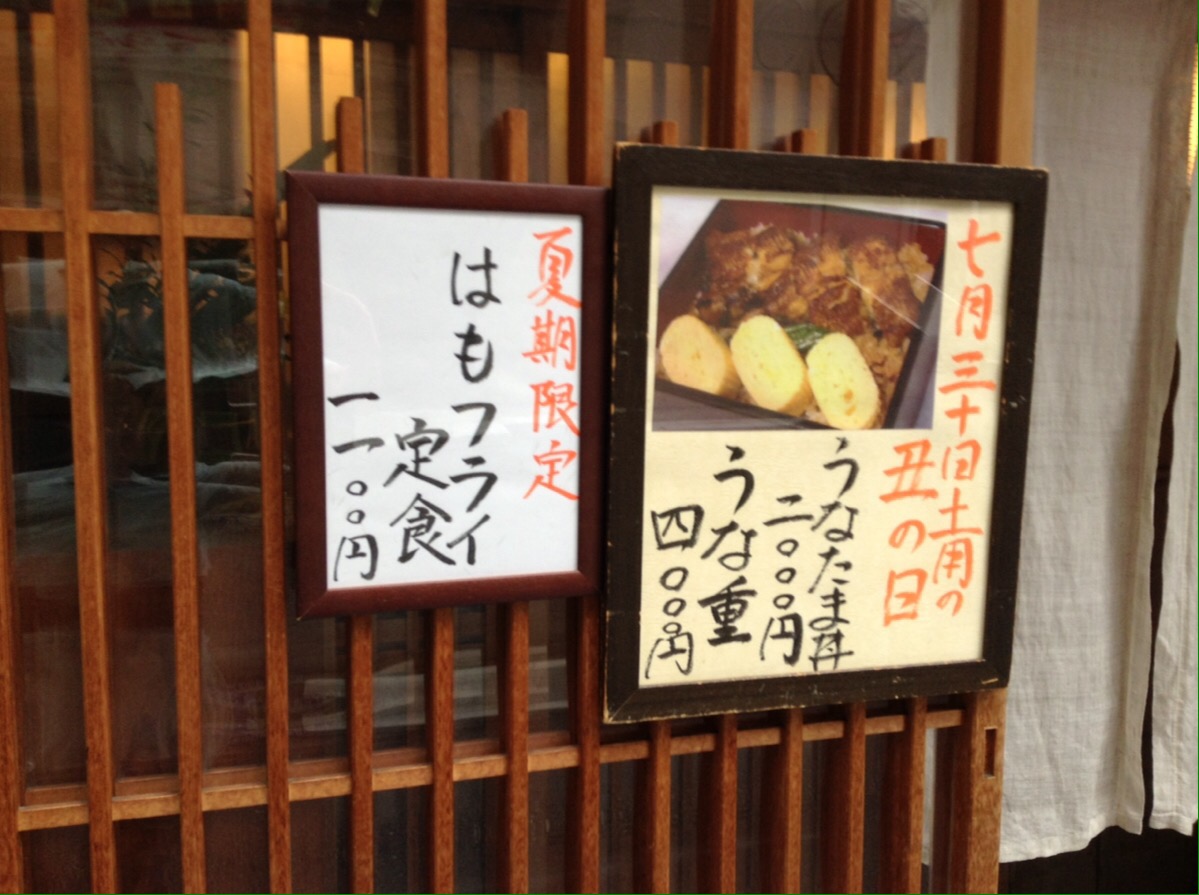 夏期限定
はもフライ
定食
一一〇〇円
七月三十日土用の
丑の日
うなたま丼
二〇〇〇円
うな重
四〇〇〇円